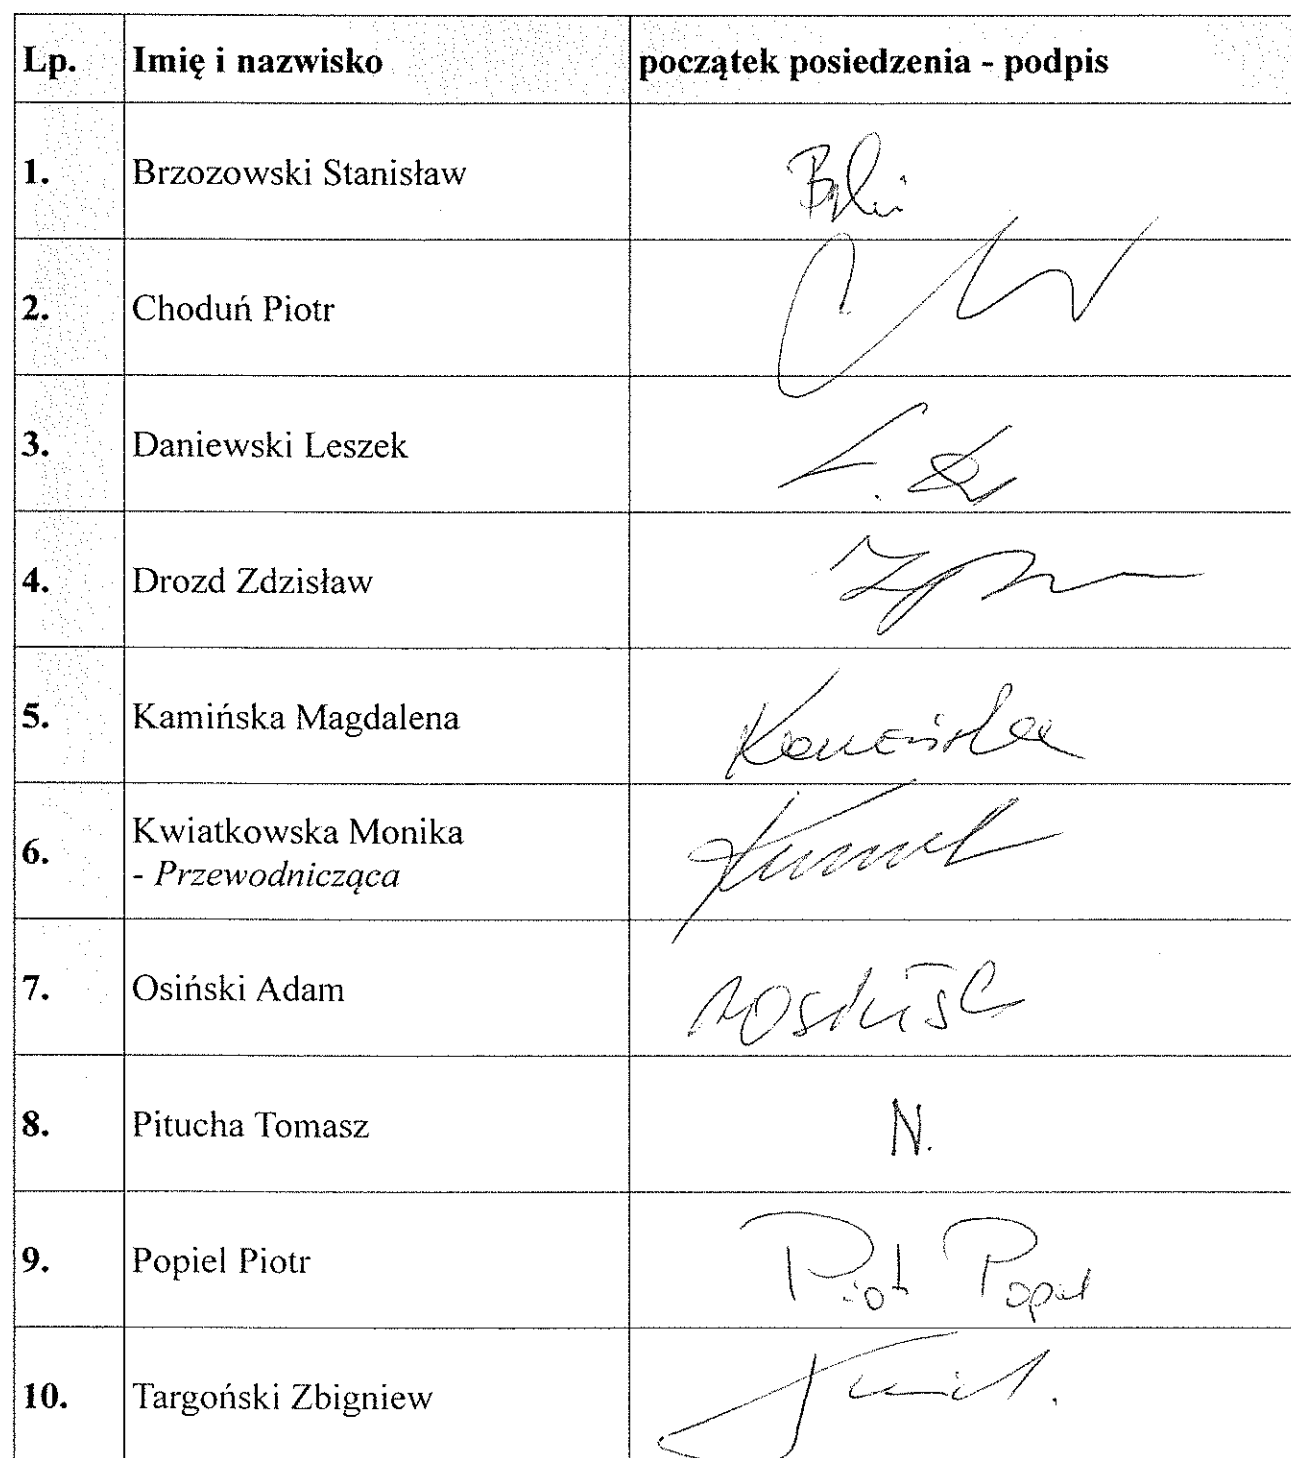 Lp. Imię i nazwisko początek posiedzenia - podpis
1. Brzozowski Stanisław
2. Choduń Piotr
3. Daniewski Leszek
4. Drozd Zdzisław
5. Kamińska Magdalena Kamińska
6. Kwiatkowska Monika
- Przewodnicząca
7. Osiński Adam
8. Pitucha Tomasz N.
9. Popiel Piotr Piotr Popiel
10. Targoński Zbigniew